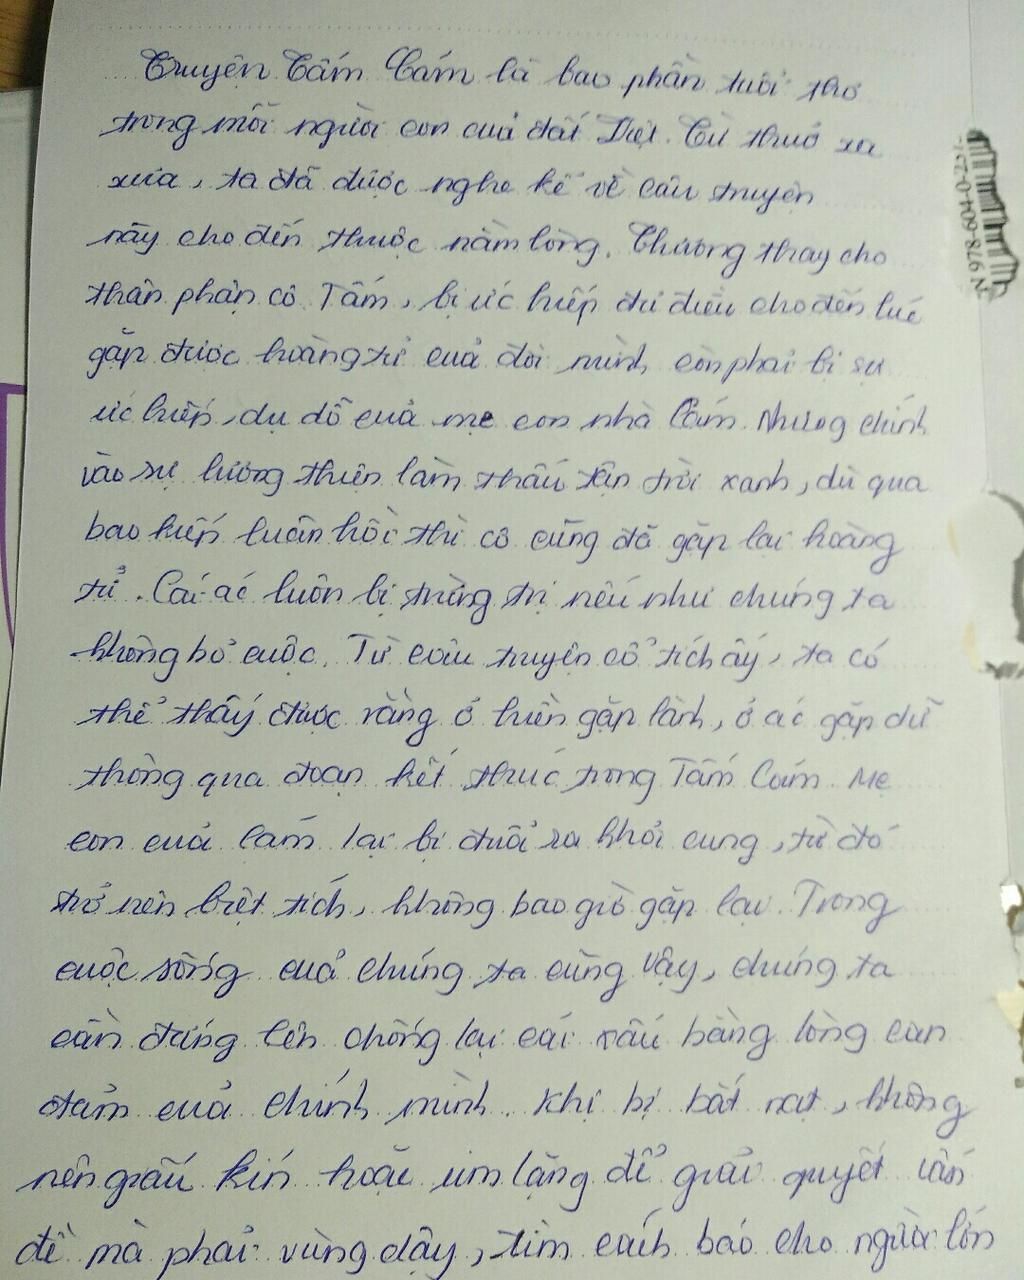 Truyện Tấm Cám là bao phần tuổi thơ
trong mỗi người con của đất Việt. Từ thuở xa
xưa, ta đã được nghe kể về câu truyện
này cho đến thuộc nằm lòng. Thương thay cho
thân phận cô Tấm, bị ức hiếp đủ điều cho đến lúc
gặp được hoàng tử của đời mình còn phải bị sự
ức hiếp, dụ dỗ của mẹ con nhà Cám. Nhưng chính
vào sự lương thiện làm thấu tận trời xanh, dù qua
bao kiếp luân hồi thì cô cũng đã gặp lại hoàng
tử. Cái ác luôn bị trừng trị nếu như chúng ta
không bỏ cuộc. Từ câu truyện cổ tích ấy, ta có
thể thấy được rằng ở hiền gặp lành, ở ác gặp dữ
thông qua đoạn kết thúc trong Tấm Cám. Mẹ
con của Cám lại bị đuổi ra khỏi cung, từ đó
trở nên biệt tích, không bao giờ gặp lại. Trong
cuộc sống của chúng ta cũng vậy, chúng ta
cần đứng lên chống lại cái xấu bằng lòng can
đảm của chính mình. Khi bị bắt nạt, không
nên giấu kín hoặc im lặng để giải quyết vấn
đề mà phải vùng dậy, tìm cách báo cho người lớn
N 978-604-0-257